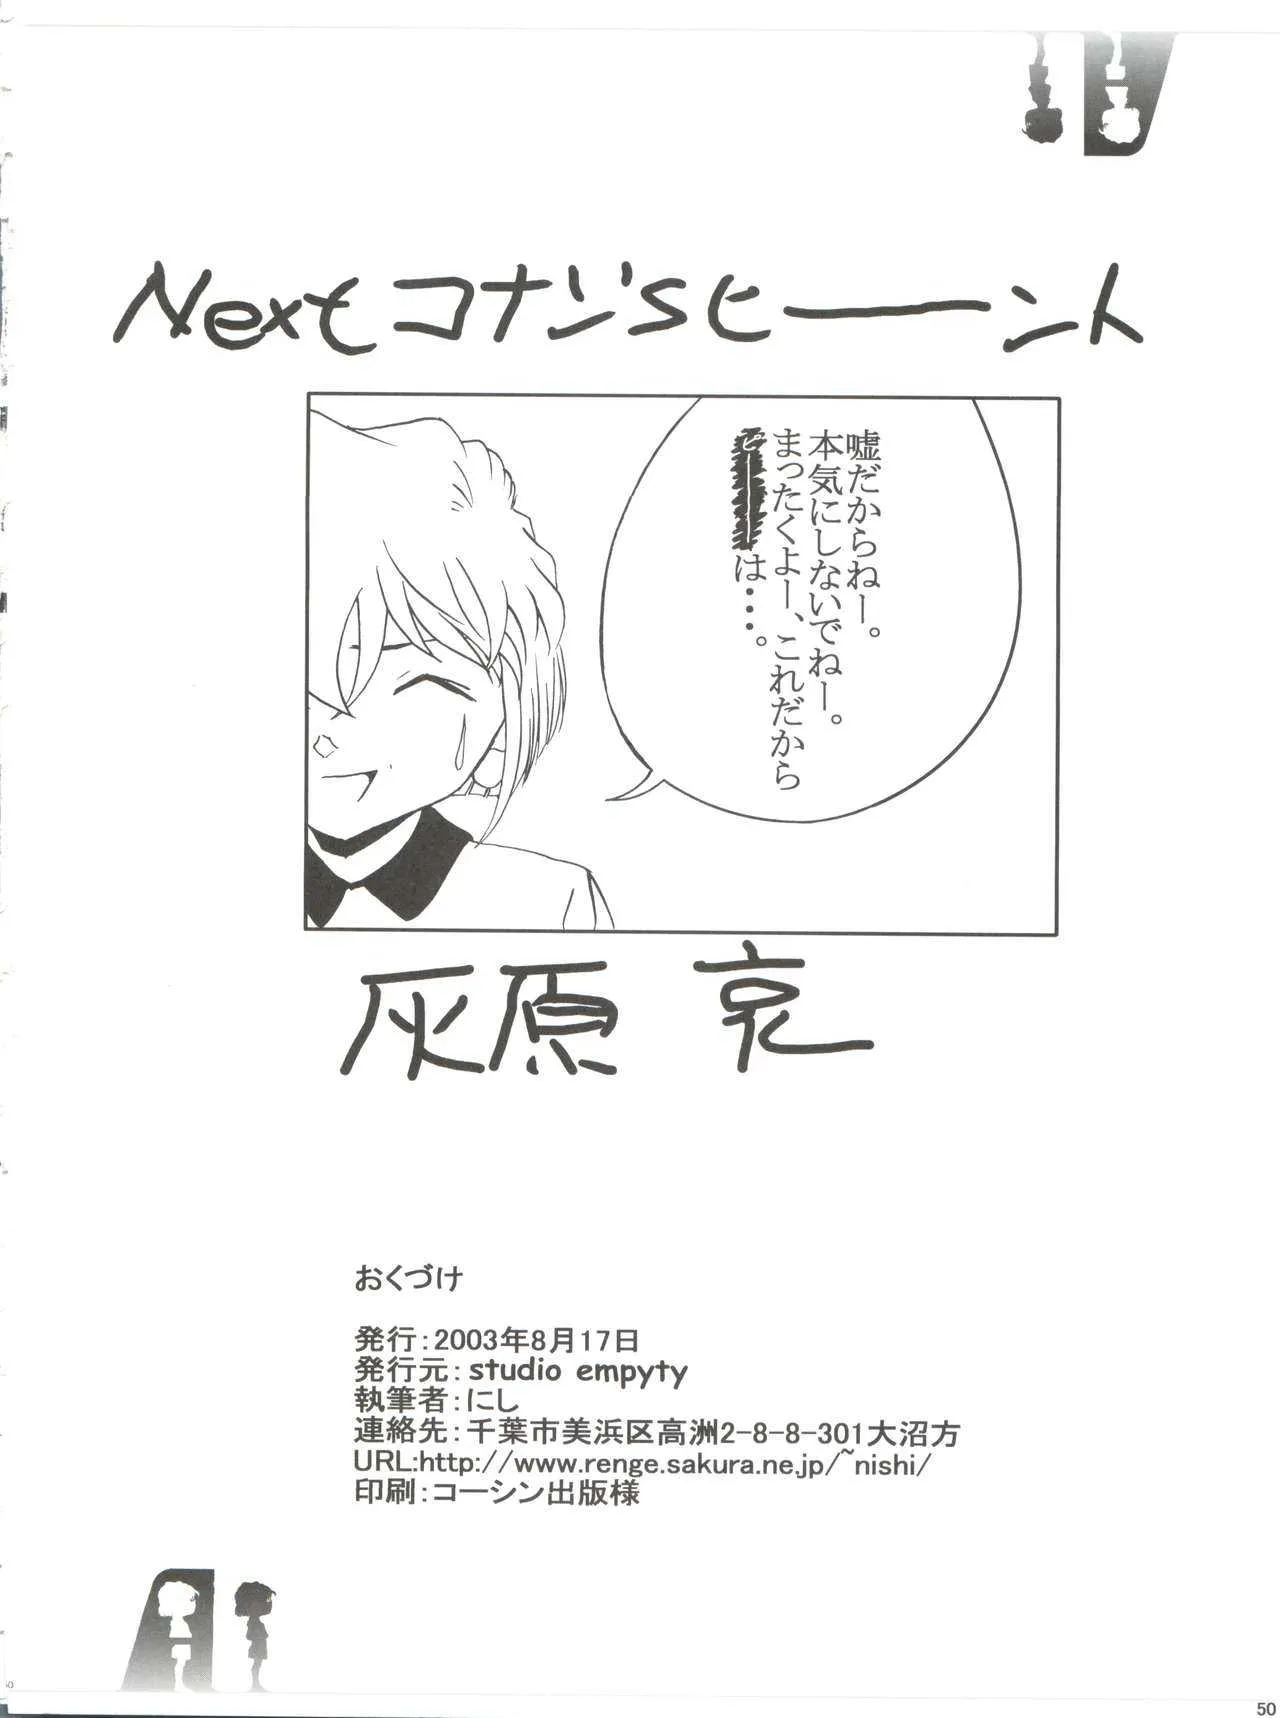 Nextコナン'Sヒーーント
嘘だからねー。
本気にしないでねー。
まったくよー、これだから
ピーーーーは・・・。
灰原 哀
おくづけ
発行：2003年8月17日
発行元：studio empyty
執筆者：にし
連絡先：千葉市美浜区高洲2-8-8-301大沼方
URL:http://www.renge.sakura.ne.jp/~nishi/
印刷：コーシン出版様
50